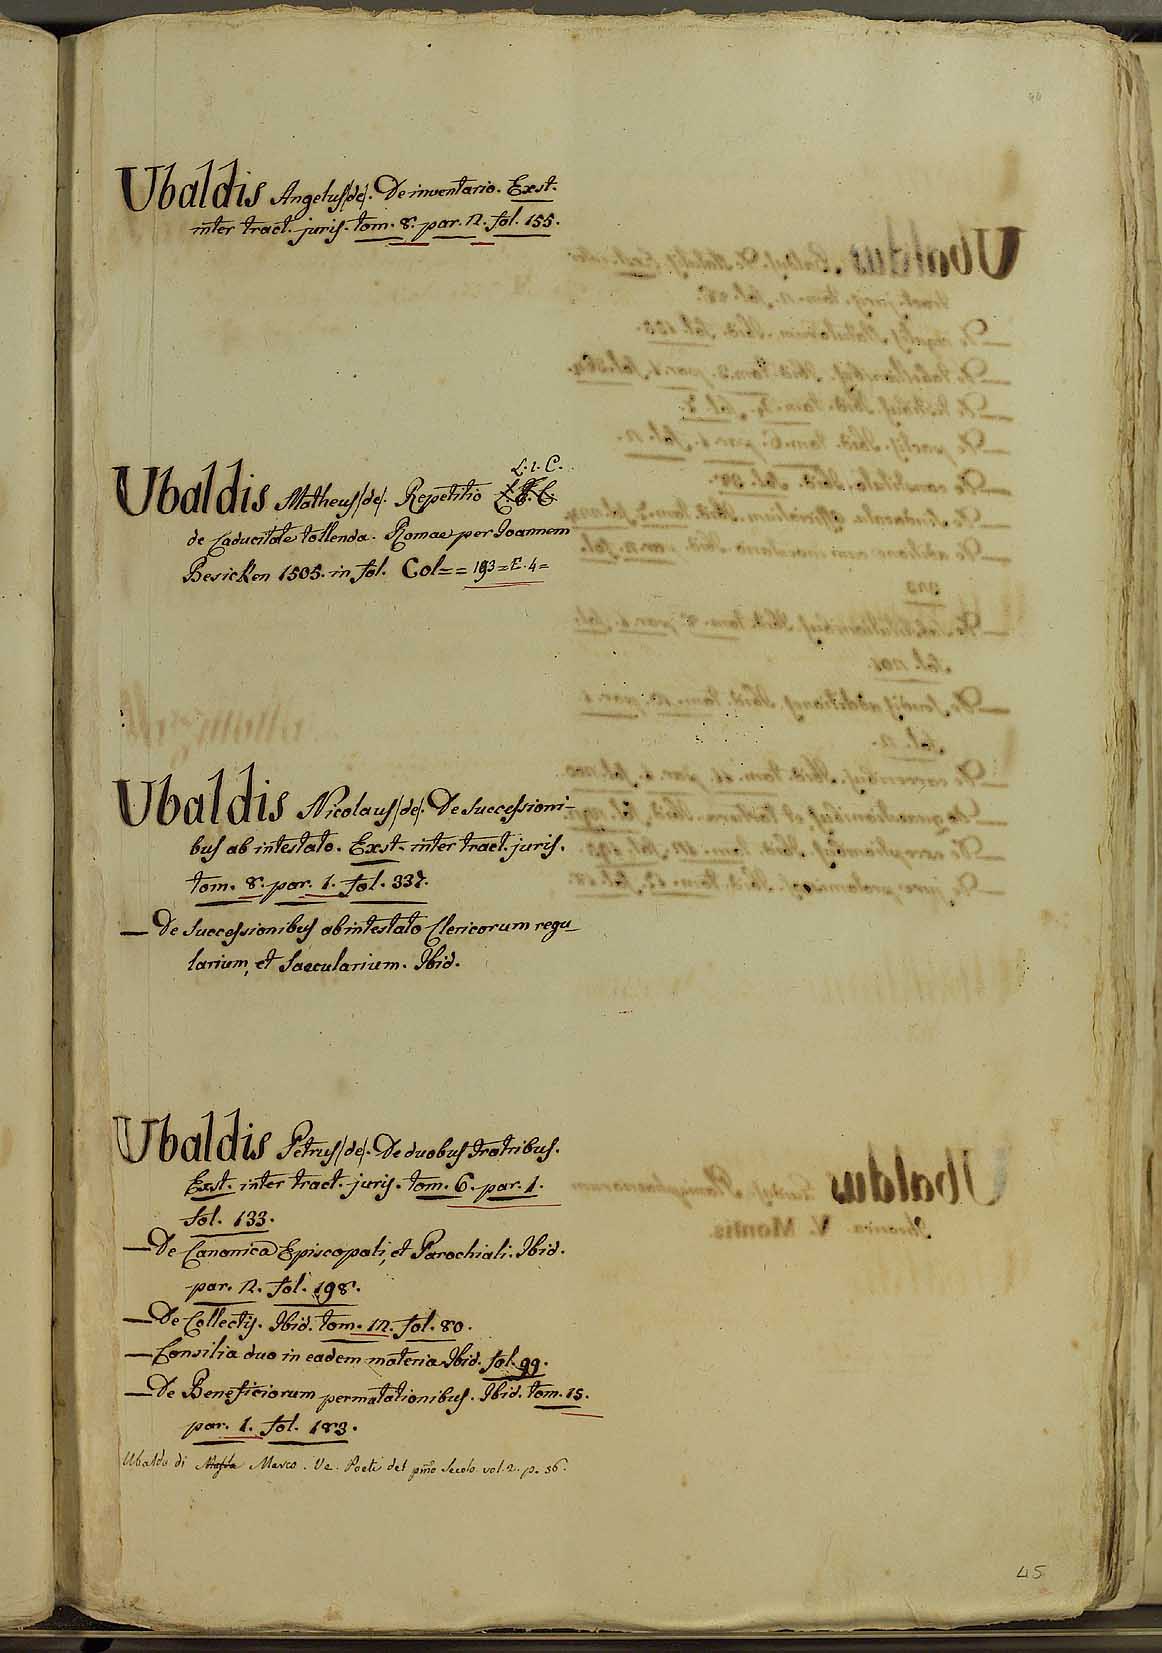 Ubaldis Angelus /de/. De inventario. Exst.
inter tract. juris. tom. 8. par. 2. fol. 155.
L. 1. C.
Ubaldis Matheus /de/. Repetitio
de Caducitate tollenda. Romae per Joannem
Besicken 1505. in fol. Col== 193=E. 4=
Ubaldis Nicolaus /de/. De successioni-
bus ab intestato. Exst. inter tract. juris.
tom. 8. par. 1. fol. 337.
— De successionibus ab intestato Clericorum regu-
larium, et saecularium. Ibid.
Ubaldis Petrus /de/. De duobus fratribus.
Exst. inter tract. juris. tom. 6. par. 1.
fol. 133.
— De Canonica Episcopali, et Parochiali. Ibid.
par. 2. fol. 198.
— De Collectis. Ibid. tom. 12. fol. 80.
— Consilia duo in eadem materia Ibid. fol. 99.
— De Beneficiorum permatationibus. Ibid. tom. 15.
par. 1. fol. 183.
Ubaldo di Marco. Ve. Poeti del pmo Secolo. vol. 2. p. 36.
45